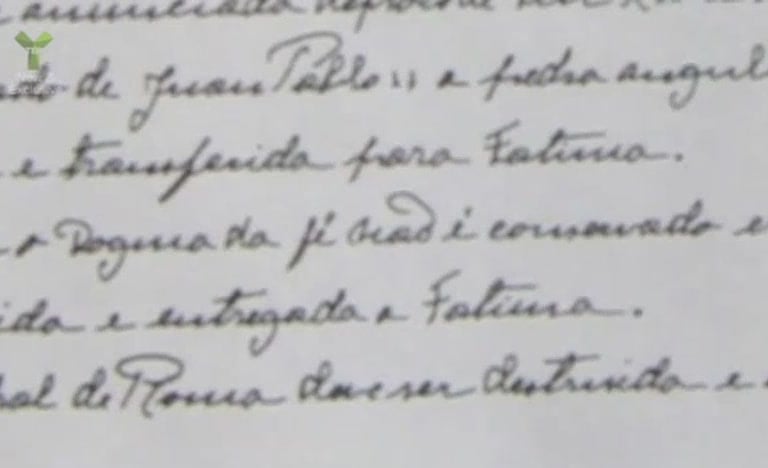 anunciado depois de
de Juan Pablo II a pedra angul
e transferida para Fatima.
o Dogma da fé não é conservado e
ida e entregada a Fatima.
ral de Roma dave ser destruida e